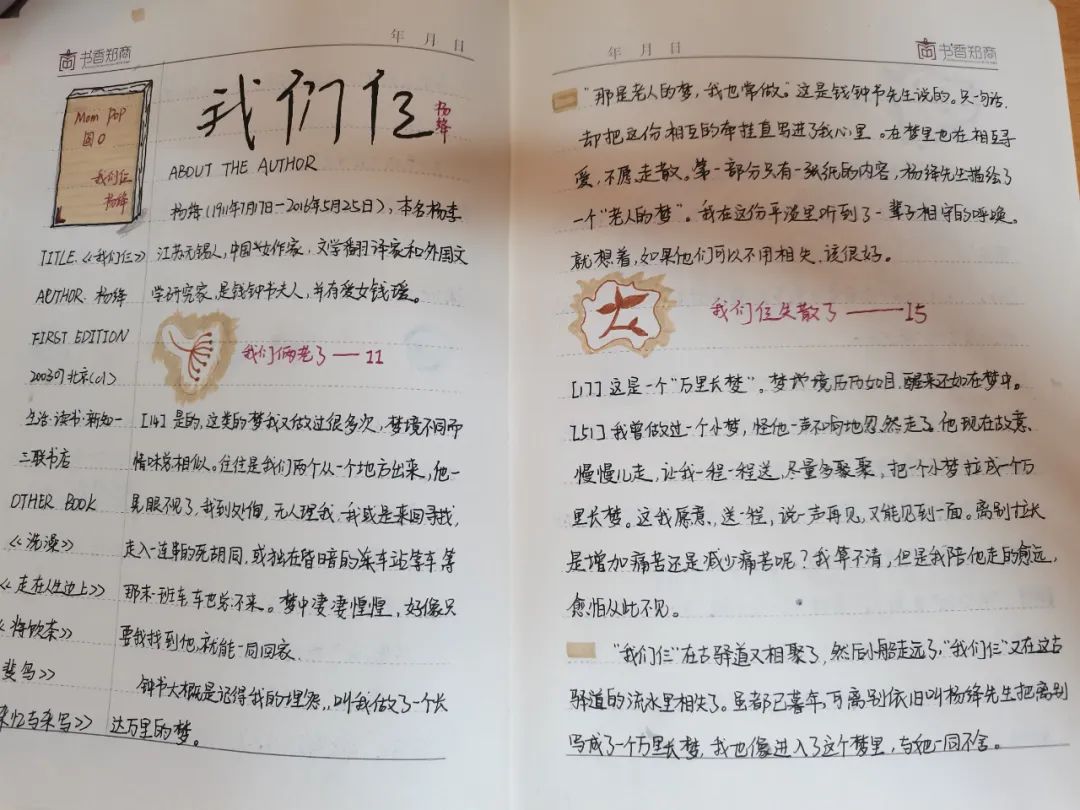 年 月 日
书香知商
我们仨
杨绛
Mom Pop
圆O
我们仨
杨绛
ABOUT THE AUTHOR
杨绛(1911年7月17日-2016年5月25日),本名杨季
江苏无锡人,中国女作家,文学翻译家和外国文
学研究家,是钱钟书夫人,并有爱女钱瑗。
TITLE.《我们仨》
AUTHOR. 杨绛
FIRST EDITION
2003.07北京(01)
生活·读书·新知一
三联书店
OTHER BOOK
《洗澡》
《走在人生边上》
《将饮茶》
我们俩老了——11
[14] 是的,这类的梦我又做过很多次,梦境不同而
情味总相似。往往是我们两个从一个地方出来,他一
晃眼不见了,我到处问,无人理我。我或是来回寻找,
走入一连串的死胡同,或独在昏暗的车站等车等
那末一班车,车也总不来。梦中凄凄惶惶,好像只
要我找到他,就能一同回家.
钟书大概是记得我的埋怨,叫我做了一个长
达万里的梦。
年 月 日
书香知商
“那是老人的梦,我也常做。”这是钱钟书先生说的。只一句话,
却把这份相互的牵挂直写进了我心里。在梦里也在相互寻
爱,不愿走散。第一部分只有一张纸的内容,杨绛先生描绘了
一个“老人的梦”。我在这份平淡里听到了一辈子相守的呼唤。
就想着,如果他们可以不用相失,该很好。
我们仨失散了——15
[17] 这是一个“万里长梦”。梦境历历如目,醒来还如在梦中。
[51] 我曾做过一个小梦,怪他一声不响地忽然走了。他现在故意、
慢慢儿走,让我一程一程送,尽量多聚聚,把一个小梦拉成一个万
里长梦。这我愿意、送一程,说一声再见,又能见到一面。离别拉长
是增加痛苦还是减少痛苦呢?我算不清,但是我陪他走的愈远,
愈怕从此不见。
“我们仨”在古驿道又相聚了,然后小船走远了,“我们仨”又在这古
驿道的流水里相失了。虽都已暮年,可离别依旧叫杨绛先生把离别
写成了一个万里长梦,我也像进入了这个梦里,与她一同不舍。